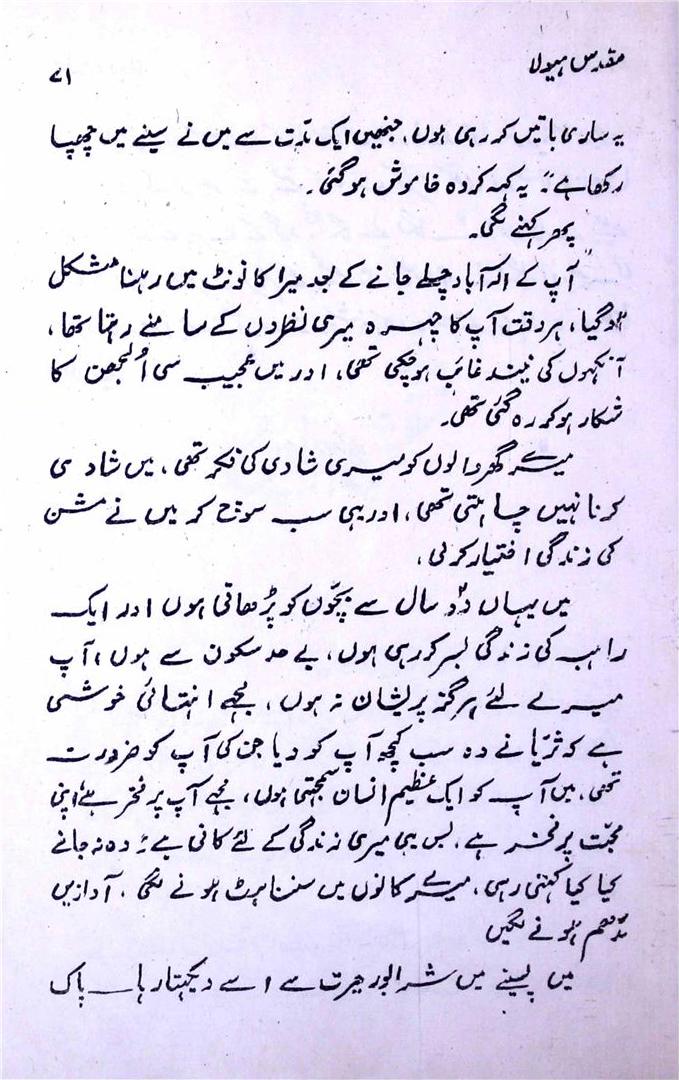 مقدس ہیولا
۷۱
یہ ساری باتیں کر رہی ہوں، جنھیں ایک مدّت سے میں نے سینے میں چھپا
رکھا ہے"۔ یہ کہہ کر وہ خاموش ہوگئی۔
پھر کہنے لگی۔
"آپ کے الہ آباد چلے جانے کے بعد میرا کانونٹ میں رہنا مشکل
ہوگیا، ہر وقت آپ کا چہرہ میری نظروں کے سامنے رہتا تھا،
آنکھوں کی نیند غائب ہوچکی تھی، اور میں عجیب سی اُلجھن کا
شکار ہوکر رہ گئی تھی۔
میرے گھر والوں کو میری شادی کی فکر تھی، میں شادی
کرنا نہیں چاہتی تھی، اور یہی سب سوچ کر میں نے مشن
کی زندگی اختیار کرلی،
میں یہاں دو سال سے بچّوں کو پڑھاتی ہوں اور ایک
راہب کی زندگی بسر کر رہی ہوں، بے حد سکون سے ہوں، آپ
میرے لئے ہرگز پریشان نہ ہوں، مجھے انتہائی خوشی
ہے کہ ثریّا نے وہ سب کچھ آپ کو دیا جن کی آپ کو ضرورت
تھی، میں آپ کو ایک عظیم انسان سمجھتی ہوں، مجھے آپ پر فخر ہے، اپنی
محبّت پر فخر ہے، بس یہی میری زندگی کے لئے کافی ہے" وہ نہ جانے
کیا کیا کہتی رہی، میرے کانوں میں سنسناہٹ ہونے لگی، آوازیں
مدّھم ہونے لگیں
میں پسینے میں شرابور حیرت سے اسے دیکھتا رہا ــ پاک